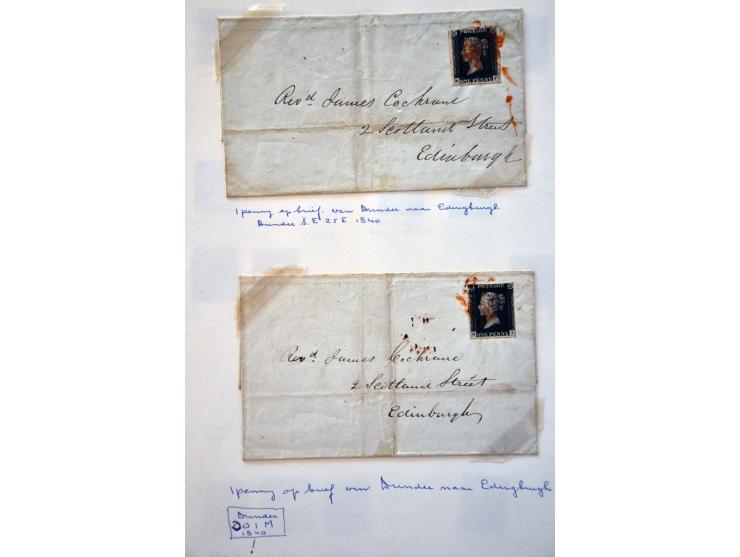 POSTAGE
ONE PENNY
Revd James Cochrane
2 Scotland Street
Edinburgh
1 penny op brief. van Dundee naar Edingburgh
Dundee S.E 25 E 1840
POSTAGE
ONE PENNY
Revd James Cochrane
2 Scotland Street
Edinburgh
1 penny op brief van Dundee naar Edingburgh
Dundee
O 1 M
1840
!